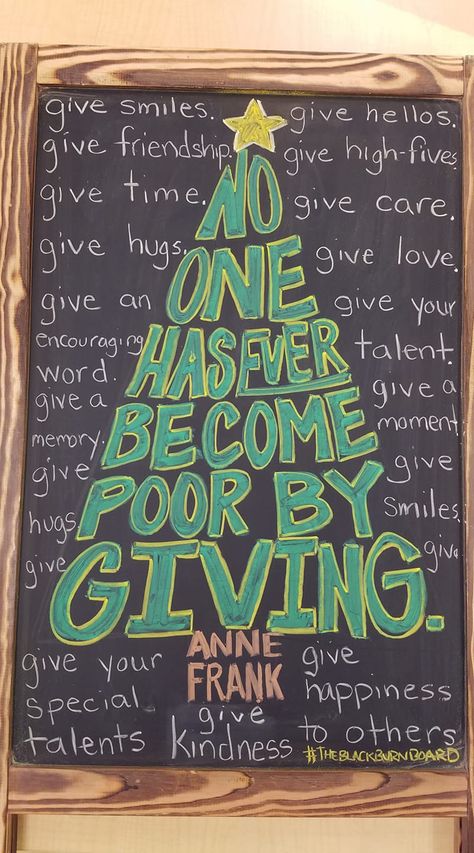 give smiles.
give hellos.
give friendship.
give high-fives
give time.
give care.
give hugs.
give love.
give an
encouraging
word.
give your
talent.
give a
memory.
give a
moment
give
hugs.
give
smiles.
give
give
NO
ONE
HAS EVER
BECOME
POOR BY
GIVING.
ANNE
FRANK
give your
special
talents
give
kindness
give
happiness
to others
#THEBLACKBURNBOARD